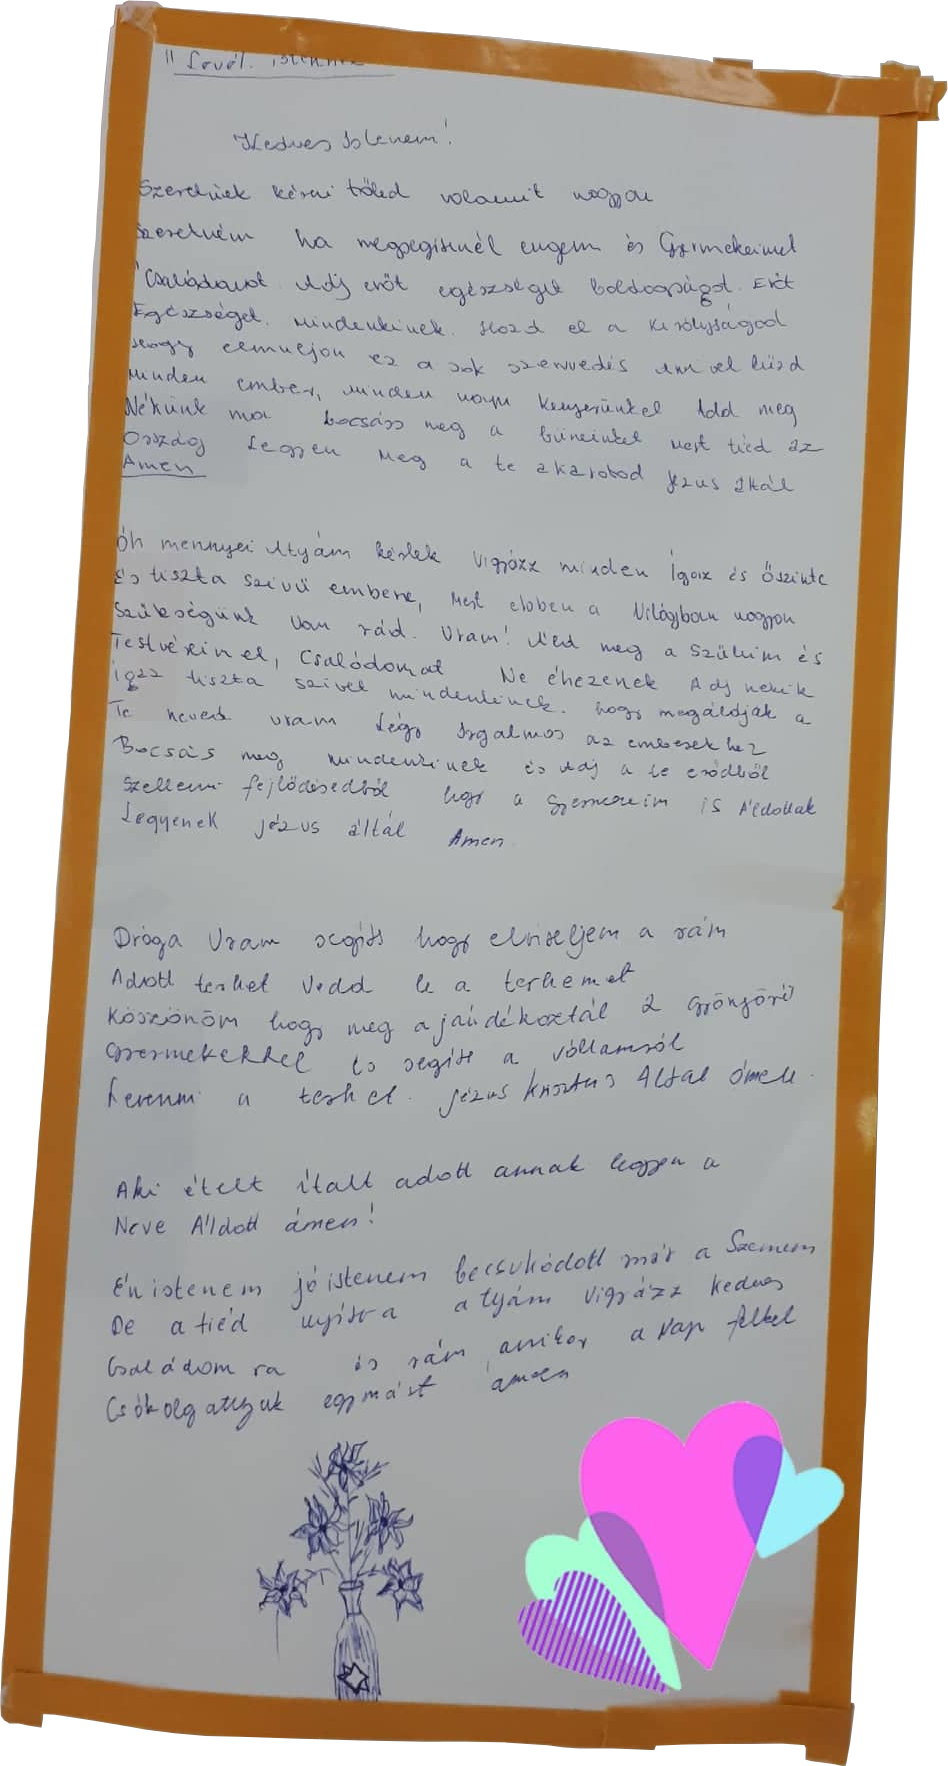 " Levél. istenhez
Kedves Istenem!
Szeretnék kérni tőled valamit nagyon
Szeretném ha megsegitenél engem és Gyermekeimet
Családomat Adj erőt egészséget boldogságot. Erőt
Egészséget. mindenkinek. Hozd el a Királyságod
Hogy elmuljon ez a sok szenvedés amivel küzd
minden ember, minden napi kenyerünket Add meg
Nékünk ma bocsáss meg a büneinket mert tiéd az
Ország Legyen meg a te akaratod Jézus által
Amen
Óh mennyei Atyám kérlek Vigyázz minden Igaz és őszinte
És tiszta szivü embere, mert ebben a Világban nagyon
Szükségünk van rád. Uram! Áled meg a Szüleim és
Testvéreimet, Családomat Ne éhezenek Adj nekik
igaz tiszta szivet mindenkinek. hogy megáldják a
Te neved uram Légy irgalmas az emberekhez
Bocsás meg mindenkinek és Adj a te erődből
Szellemi fejlődésedből hogy a gyermekeim is Áldottak
Legyenek Jézus által Amen
Drága Uram segits hogy elviseljem a rám
Adott terhet Vedd le a terhemet
Köszönöm hogy meg ajándékoztál 2 gyönyörü
Gyermekekkel És segits a vállamról
Levenni a terhet. Jézus krisztus Által ámen.
Aki ételt italt adott annak legyen a
Neve Áldott ámen!
Én istenem jó istenem becsukódott már a Szemem
De a tiéd nyitva atyám Vigyázz kedves
Családom ra és rám amikor a Nap felkel
Csókolgattyuk egymást ámen